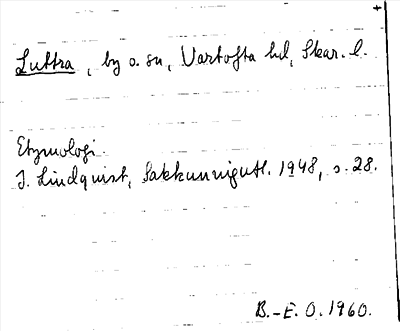 Luttra, by o. sn, Vartofta hd, Skar. l.
Etymologi.
I. Lindquist, Sakkunnigutl. 1948, s. 28.
B.-E. O. 1960.